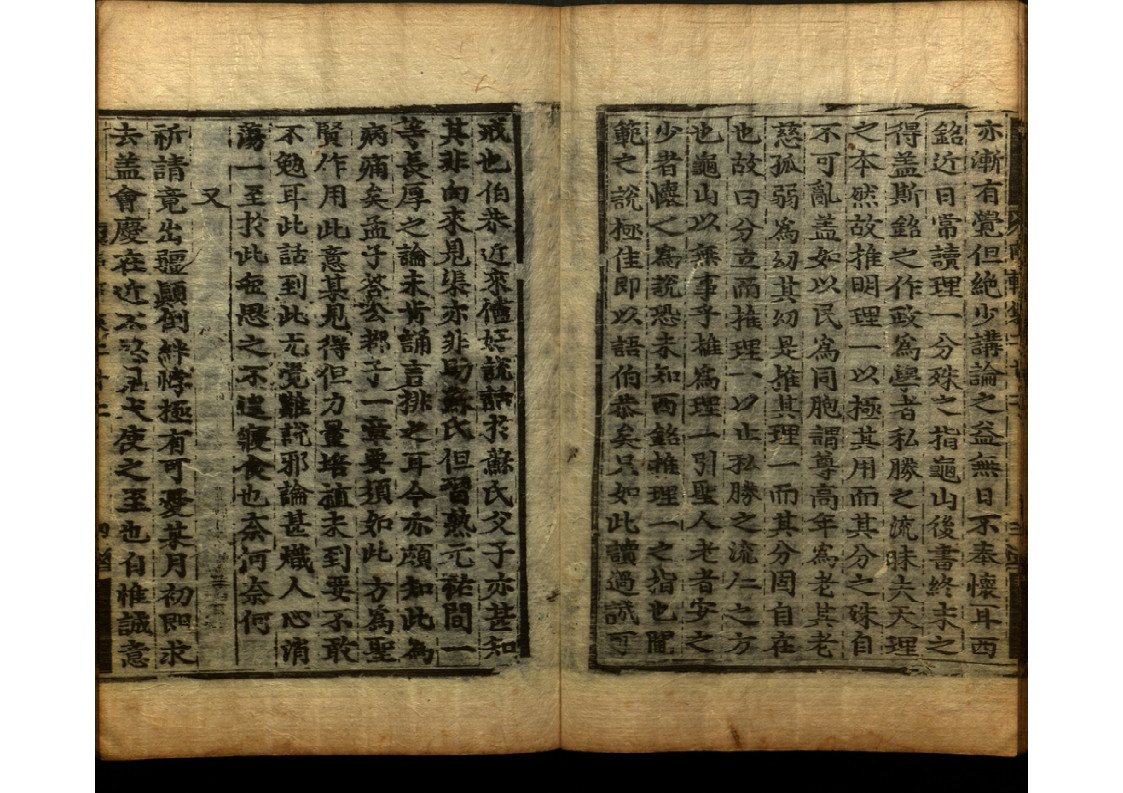 亦漸有覺但絶少講論之益無日不奉懷耳西
銘近日常讀理一分殊之指龜山後書終未之
得盖斯銘之作政爲學者私勝之流昧夫天理
之本然故推明理一以極其用而其分之殊自
不可亂盖如以民爲同胞謂尊高年爲老其老
慈孤弱爲幼其幼是推其理一而其分固自在
也故曰分立而推理一以止私勝之流仁之方
也龜山以無事乎推爲理一引聖人老者安之
少者懷之爲說恐未知西銘推理一之指也聞
範之說極佳即以語伯恭矣只如此讀過誠可
戒也伯恭近來儘好說話於蘇氏父子亦甚知
其非向來見渠亦非助蘇氏但習熟元祐間一
等長厚之論未肯誦言排之耳今亦頗知此爲
病痛矣孟子荅公都子一章要須如此方爲聖
賢作用此意某見得但力量培植未到要不敢
不勉耳此話到此尤覺難說邪論甚熾人心消
蕩一至於此每思之不遑寢食也柰何柰何
又
祈請竟出疆顛倒絆悖極有可憂某月初即求
去盖會慶在近不使之至也伯惟誠意